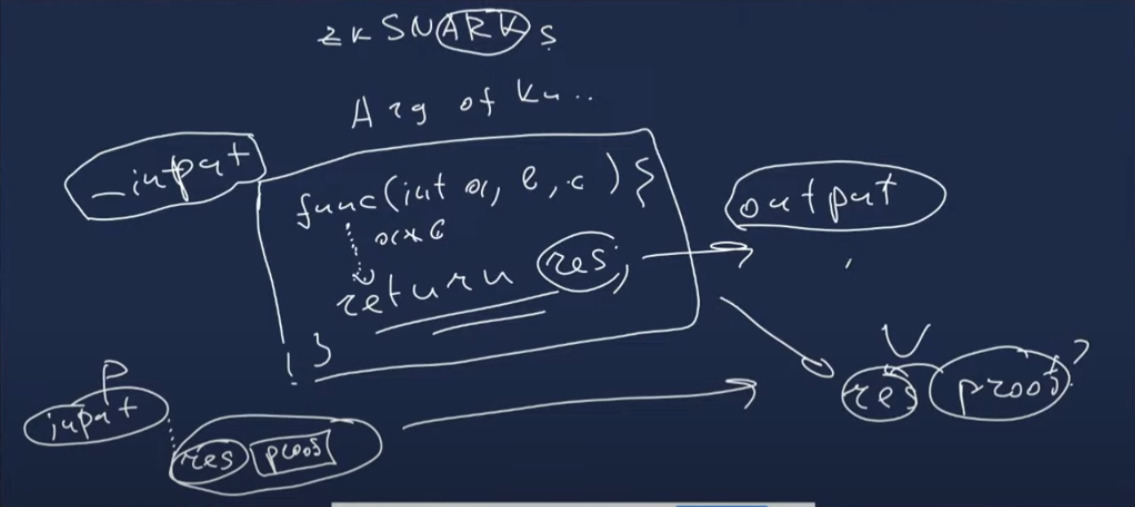 zkSNARKs
Arg of Kn..
_input
func(int a, b, c) {
return res;
}
output
P
input
res proof
V
res proof?